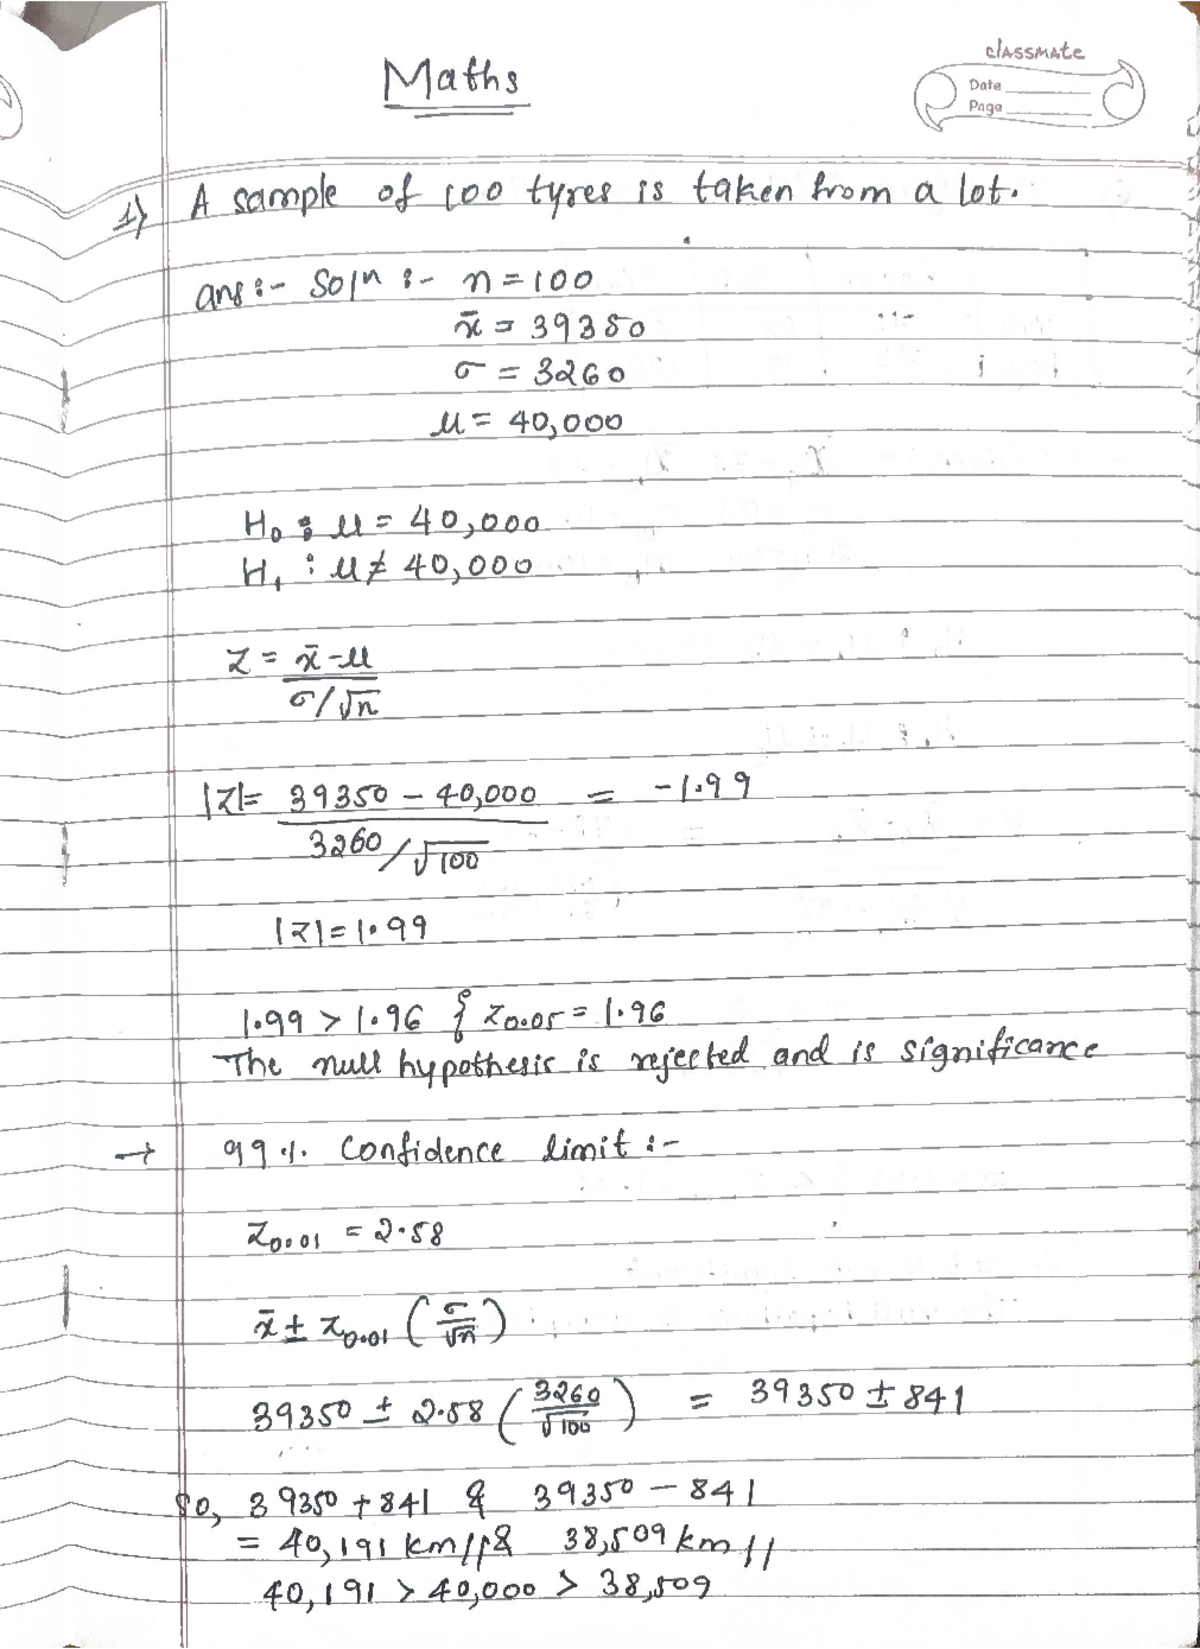 Maths
classmate
Date
Page
1) A sample of 100 tyres is taken from a lot.
ans :- Soln :- n = 100
x̄ = 39350
σ = 3260
μ = 40,000
H₀ : μ = 40,000
H₁ : μ ≠ 40,000
Z = x̄ - μ
σ/√n
|Z| = 39350 - 40,000 = -1.99
3260/√100
|Z| = 1.99
1.99 > 1.96 { Z0.05 = 1.96
The null hypothesis is rejected and is significance
→ 99 %. Confidence limit :-
Z0.01 = 2.58
x̄ ± Z0.01 (σ/√n)
39350 ± 2.58 (3260/√100) = 39350 ± 841
So, 39350 + 841 & 39350 - 841
= 40,191 km // & 38,509 km //
40,191 > 40,000 > 38,509